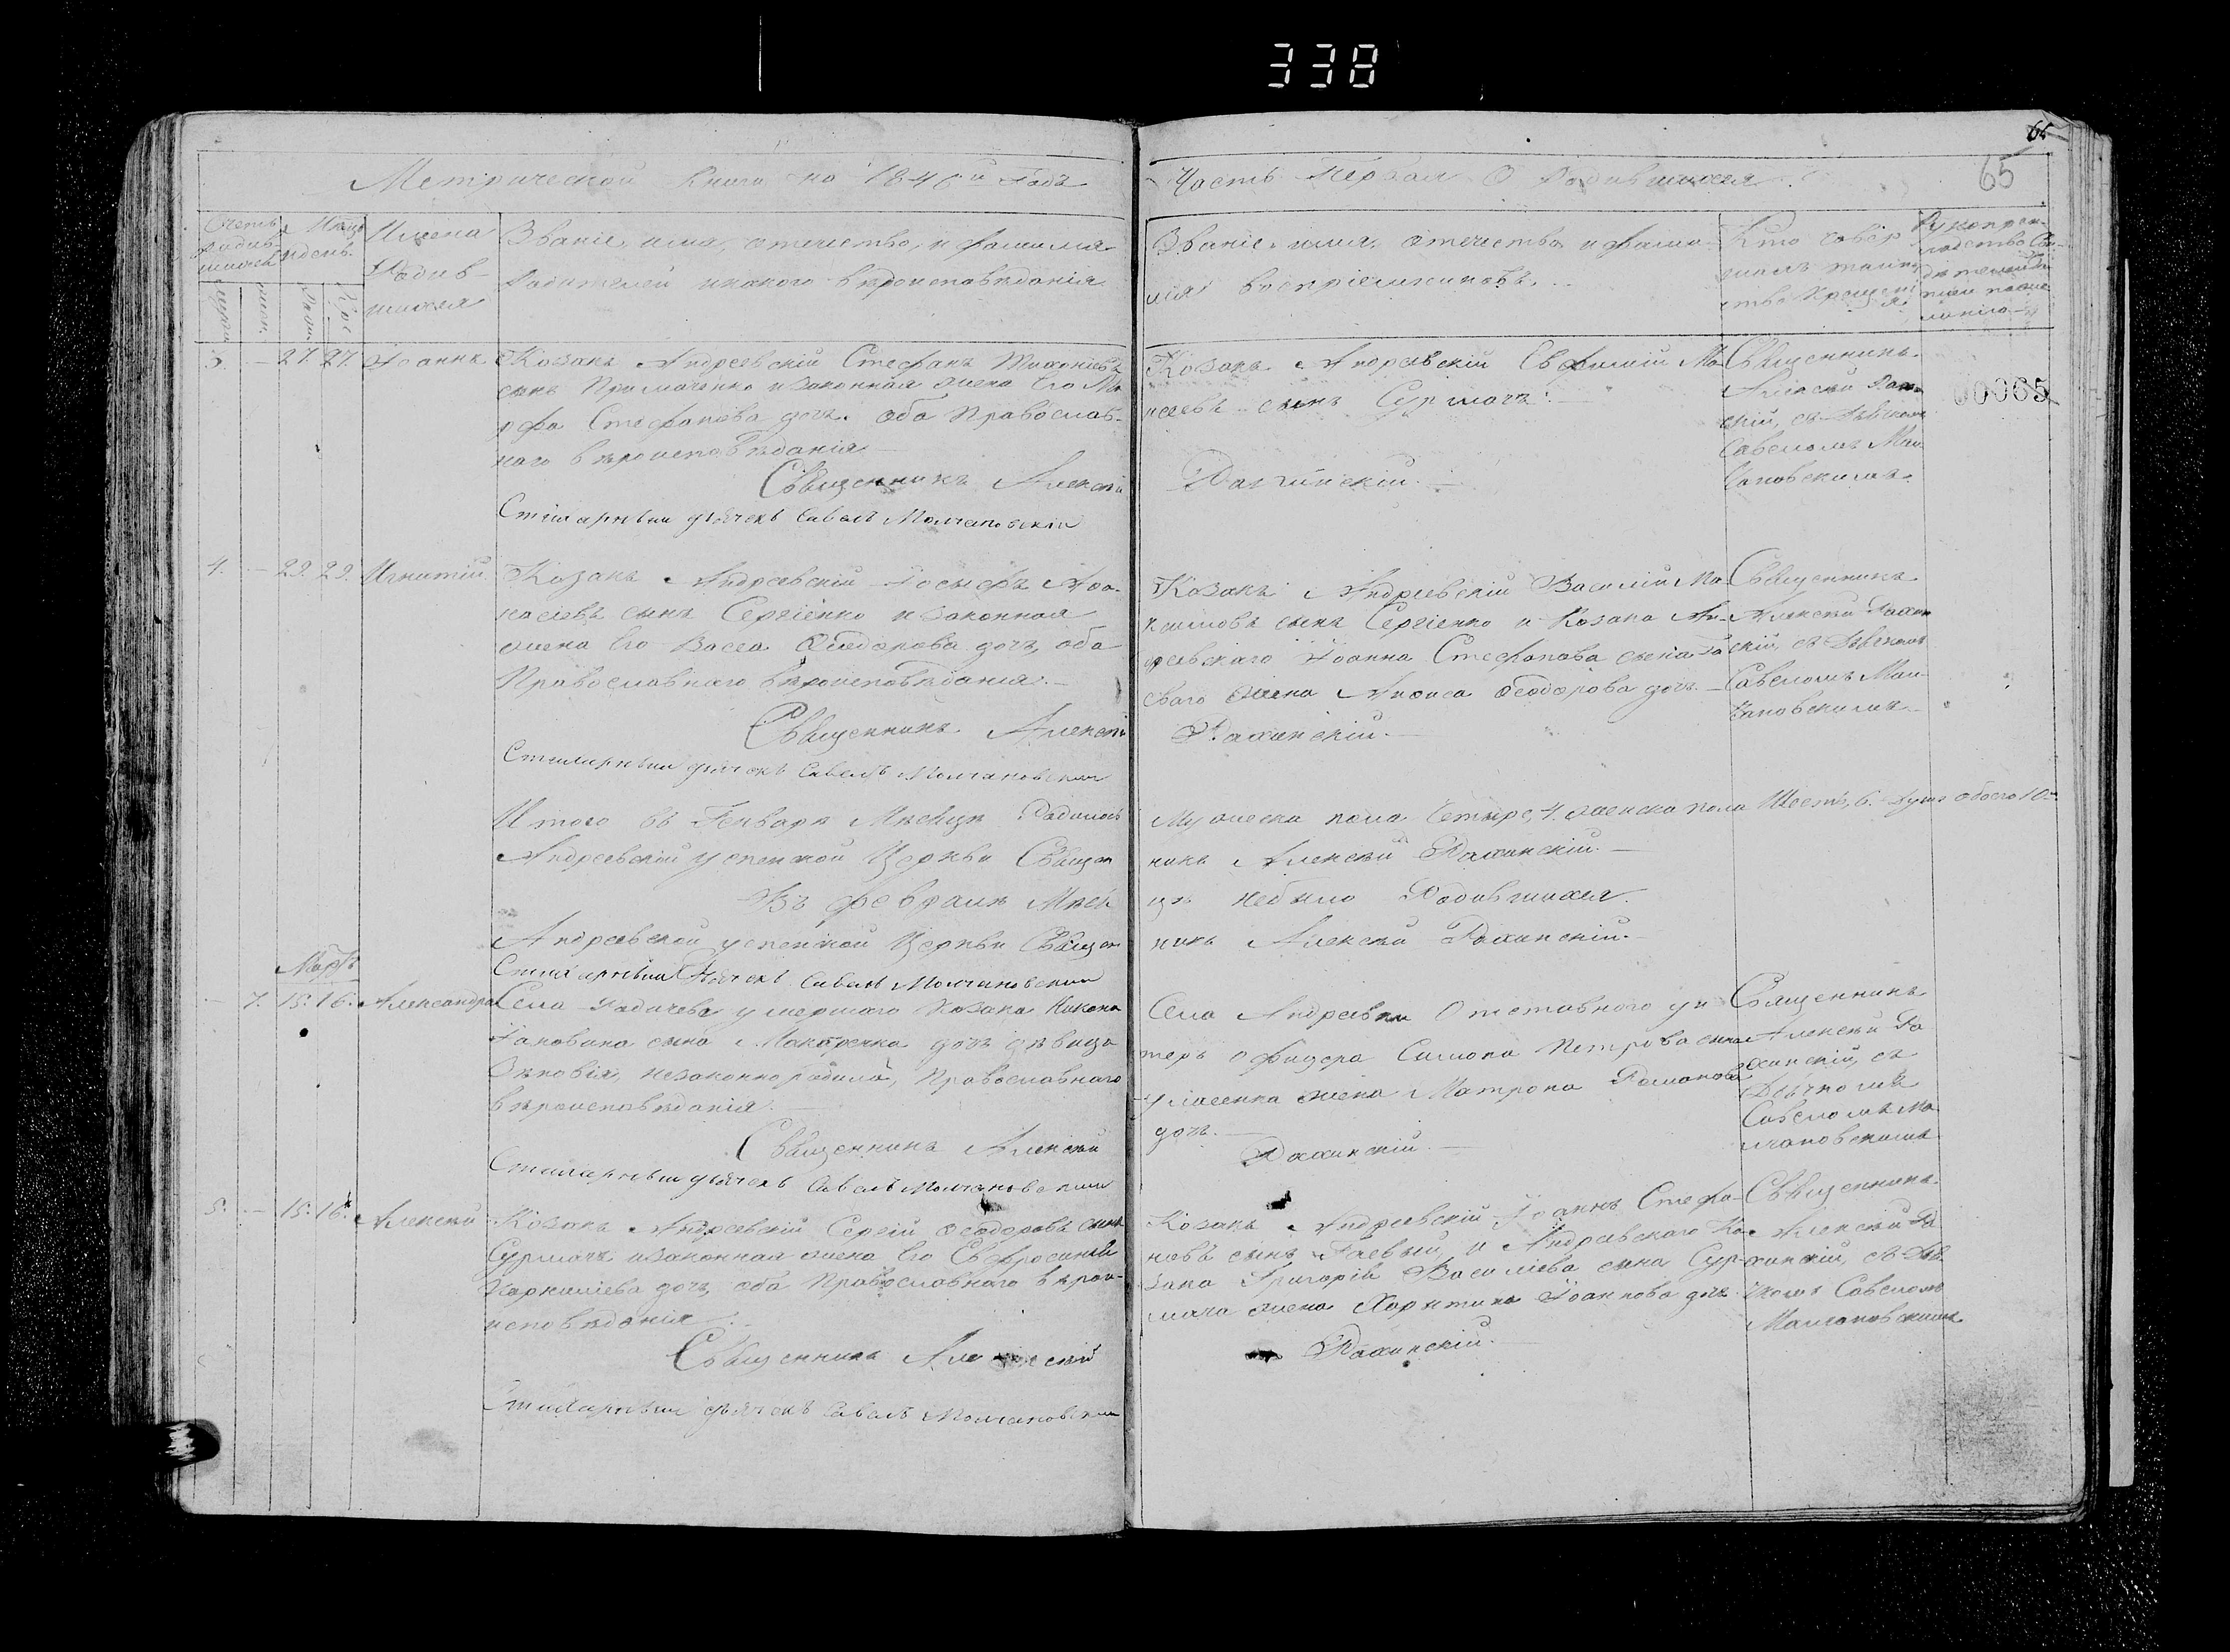 338
65
65
Метрической Книги на 1846й Годъ
Часть Первая О Родившихся.
Счетъ родившихся
Мѣсяцъ и день.
Имена Родившихся
Званіе, имя, отечество, и фамилія
Родителей и какого вѣроисповѣданія
Званіе, имя, отечество и фами-
лія воспріемниковъ.
Кто совер
шалъ таин
ство Крещенія
Рукопри-
кладство Сви-
дѣтелей
00065
3. – 27. 27. Іоаннъ
Козакъ Андреевскій Стефанъ
сынъ Примаченко и законная жена Его Ма
рфа Стефанова дочь. оба Православ-
наго вѣроисповѣданія
Священникъ Алексій
Стихарный дьячекъ Савелъ Молчановскій
Козакъ Андреевскій Евфимій Мо
исеевъ сынъ Сурмачъ.
Рахинскій.
Священникъ
Алексій Рахин
скій, съ дьячкомъ
Савеломъ Мол
чановскимъ.
4. – 29. 29. Игнатій
Козакъ Андреевскій Іосифъ Афа-
насіевъ сынъ Сергіенко и законная
жена Его Васса Феодорова дочь, оба
Православнаго вѣроисповѣданія.
Священникъ Алексій
Стихарный дьячекъ Савелъ Молчановскій
Козакъ Андреевскій Василій Ма
ксимовъ сынъ Сергіенко и Козака Ан-
дреевскаго Іоанна Стефанова сына Га
еваго жена Анфиса Феодорова дочь.
Рахинскій.
Священникъ
Алексій Рахин
скій, съ дьячкомъ
Савеломъ Мол-
чановскимъ
Итого въ Генварѣ Мѣсяцѣ Родилось
Мужеска пола Четыре, 4. женска пола Шесть, 6. душъ обоего 10.
Андреевской Успенской Церкви Священ
никъ Алексій Рахинскій.
Въ февралѣ Мѣся
цѣ небыло Родившихся.
Андреевской Успенской Церкви Священ
никъ Алексій Рахинскій.
Стихарный Дьячекъ Савелъ Молчановскій
Мартъ
– 7. 15. 16. Александра
Села Радичева умершаго Козака Никона
сына Макаренка дочь дѣвица
Зѣновія, незаконно родила, Православнаго
вѣроисповѣданія.
Священникъ Алексій
Стихарный дьячекъ Савелъ Молчановскій
Села Андреевки Отставнаго ун
теръ офицера Симона Петрова сына
жена Матрона Романова
дочь.
Рахинскій.
Священникъ
Алексій Ра
хинскій, съ
Дьячкомъ
Савеломъ Мо
лчановскимъ
5. – 15. 16. Алексій
Козакъ Андреевскій Сергій Феодоровъ сынъ
Сурмачъ и законная жена Его Евфросинія
Корниліева дочь, оба Православнаго вѣрои-
исповѣданія.
Священникъ Алексій
Стихарный дьячекъ Савелъ Молчановскій
Козакъ Андреевскій Іоаннъ Стефа-
новъ сынъ Гаевый, и Андреевскаго Ко-
зака Григорія Василіева сына Сур-
мача жена Харитина Іоаннова дочь
Рахинскій.
Священникъ
Алексій Ра
хинскій, съ дья
чкомъ Савеломъ
Молчановскимъ